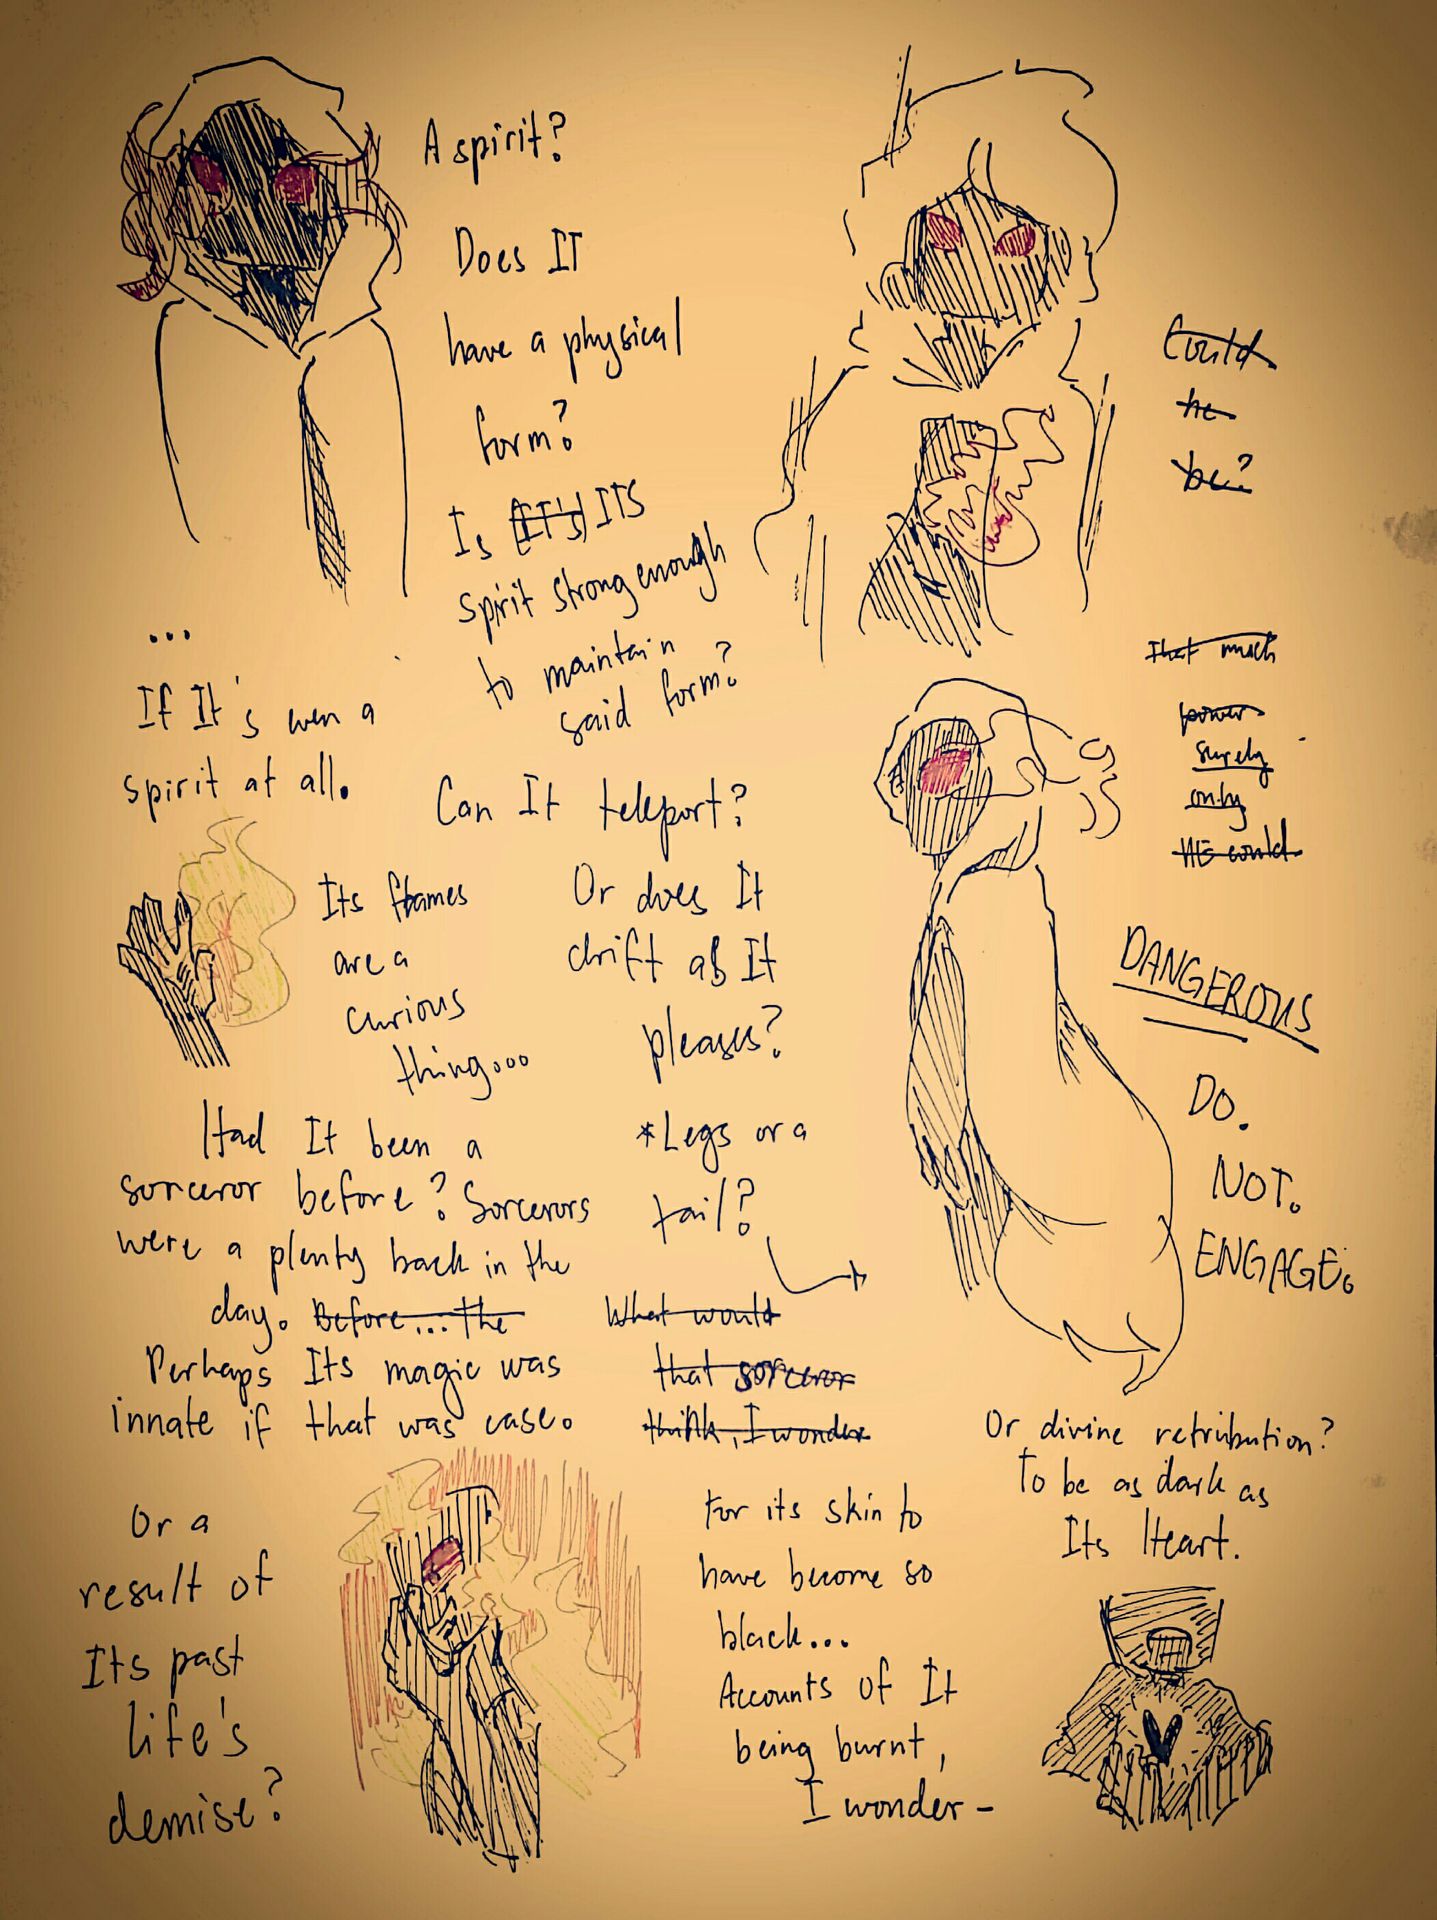 A spirit?
Does IT
have a physical
form?
Is [IT's] ITS
spirit strong enough
to maintain
said form?
Could
he
be?
...
If It's even a
spirit at all.
That much
power
surely
only
HE could
Can It teleport?
Its flames
are a
curious
thing...
Or does It
drift as It
pleases?
DANGEROUS
DO.
NOT.
ENGAGE.
*Legs or a
tail?
Had It been a
sorceror before? Sorcerors
were a plenty back in the
day. Before... the
Perhaps Its magic was
innate if that was case.
What would
that sorceror
think, I wonder
Or a
result of
Its past
life's
demise?
For its skin to
have become so
black...
Accounts of It
being burnt,
I wonder-
Or divine retribution?
To be as dark as
Its Heart.